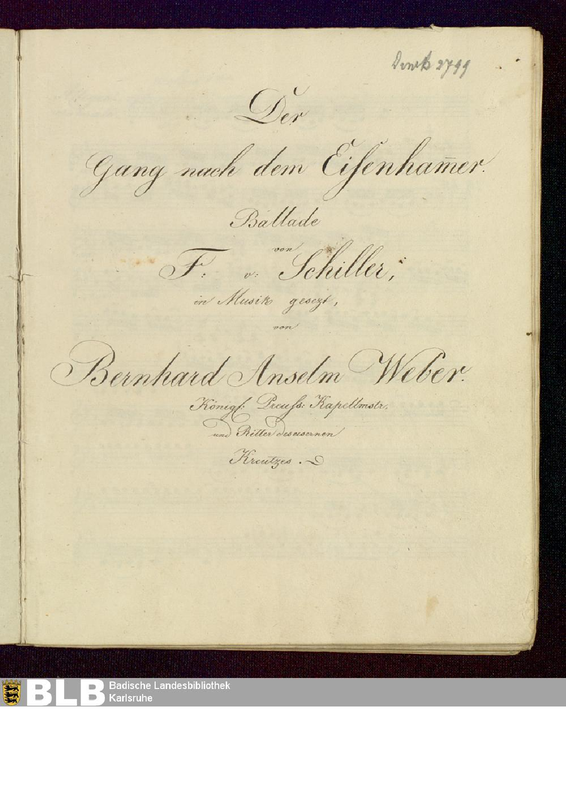 Druck 2799
Der
Gang nach dem Eiſenham̅er.
Ballade
von
F: v: Schiller,
in Musik gesezt,
von
Bernhard Anselm Weber.
Königl: Preuſs: Kapellmstr.
und Ritter des eisernen
Kreutzes.
BLB Badische Landesbibliothek
Karlsruhe